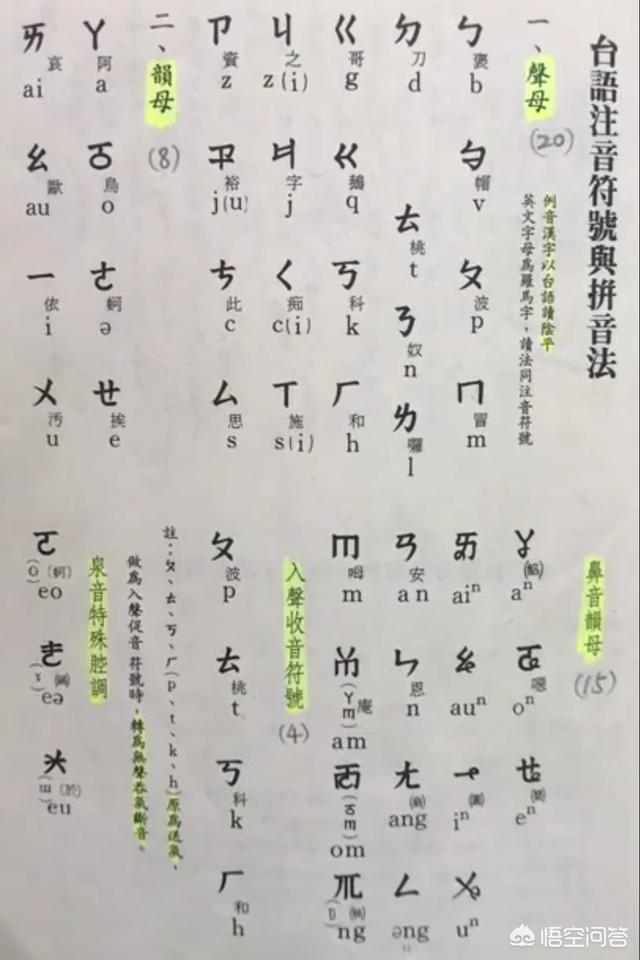 台語注音符號與拼音法
一、聲母 (20)
例音漢字以台語讀陰平
英文字母為羅馬字，讀法同注音符號
ㄅ 褒 b
ㆠ 帽 v
ㄆ 波 p
ㄇ 冒 m
ㄉ 刀 d
ㄊ 桃 t
ㄋ 奴 n
ㄌ 囉 l
ㄍ 哥 g
ㆣ 鵝 q
ㄎ 科 k
ㄏ 和 h
ㄐ 之 z(i)
ㆢ 字 j
ㄑ 痴 c(i)
ㄒ 施 s(i)
ㄗ 資 z
ㆡ 裕 j(u)
ㄘ 此 c
ㄙ 思 s
二、韻母 (8)
ㄚ 阿 a
ㆦ 烏 o
ㄜ 蚵 ə
ㆤ 挨 e
ㄞ 哀 ai
ㄠ 歐 au
ㄧ 依 i
ㄨ 汚 u
鼻音韻母 (15)
ㆩ (餡) aⁿ
ㆧ oⁿ
ㆥ eⁿ
ㆮ aiⁿ
ㆯ auⁿ
ㆪ iⁿ
ㆫ uⁿ
ㄢ 安 an
ㄣ 恩 n
ㄤ ang
ㄥ əng
ㆬ 姆 m
ㆰ 庵 (ㄚm) am
ㆱ (ㆦm) om
ㆭ ng
入聲收音符號 (4)
ㄆ 波 p
ㄊ 桃 t
ㄎ 科 k
ㄏ 和 h
註：ㄆ、ㄊ、ㄎ、ㄏ(p、t、k、h)原為送氣，
做為入聲促音符號時，轉為無聲吞氣斷音。
泉音特殊腔調
ㄛ (蚵) (o) eo
eə
(於) (ɯ) eu
悟空问答